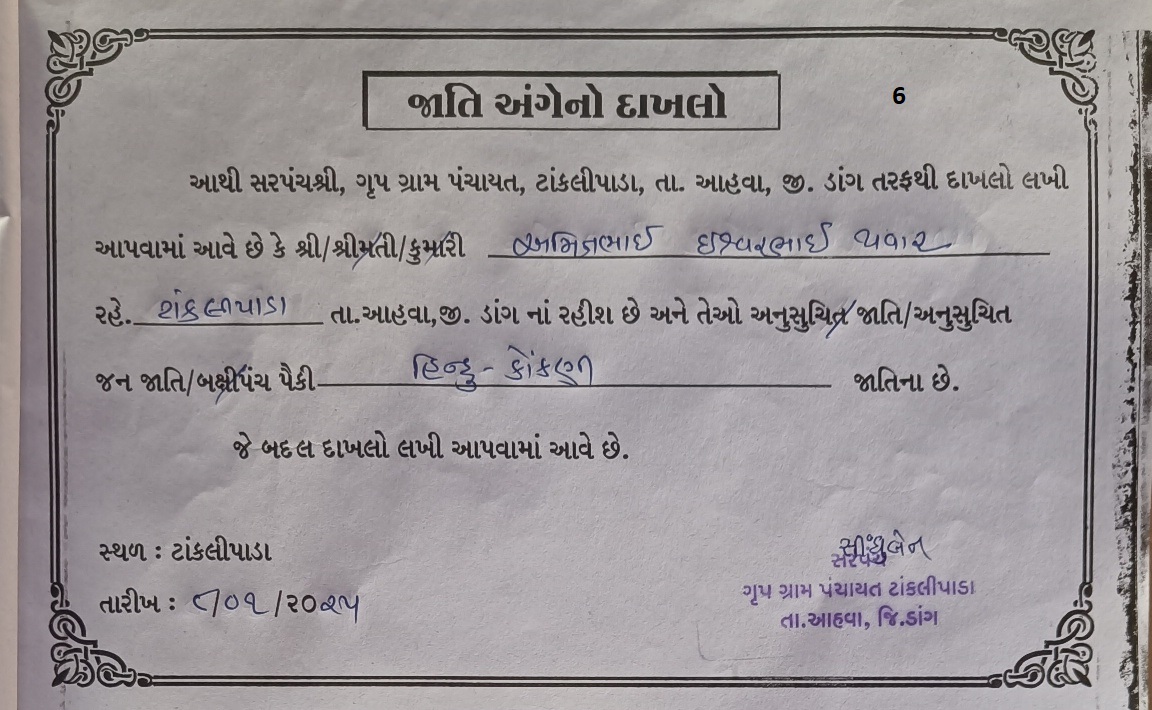 જાતિ અંગેનો દાખલો
6
આથી સરપંચશ્રી, ગૃપ ગ્રામ પંચાયત, ટાંકલીપાડા, તા. આહવા, જી. ડાંગ તરફથી દાખલો લખી
આપવામાં આવે છે કે શ્રી/શ્રીમતી/કુમારી અમિતભાઈ ઇશ્વરભાઈ પવાર
રહે. ટાંકલીપાડા તા.આહવા,જી. ડાંગ નાં રહીશ છે અને તેઓ અનુસુચિત જાતિ/અનુસુચિત
જન જાતિ/બક્ષીપંચ પૈકી હિન્દુ - કોંકણી જાતિના છે.
જે બદલ દાખલો લખી આપવામાં આવે છે.
સ્થળ : ટાંકલીપાડા
તારીખ : ૯/૦૧/૨૦૨૫
સરપંચ
ગૃપ ગ્રામ પંચાયત ટાંકલીપાડા
તા.આહવા, જિ.ડાંગ